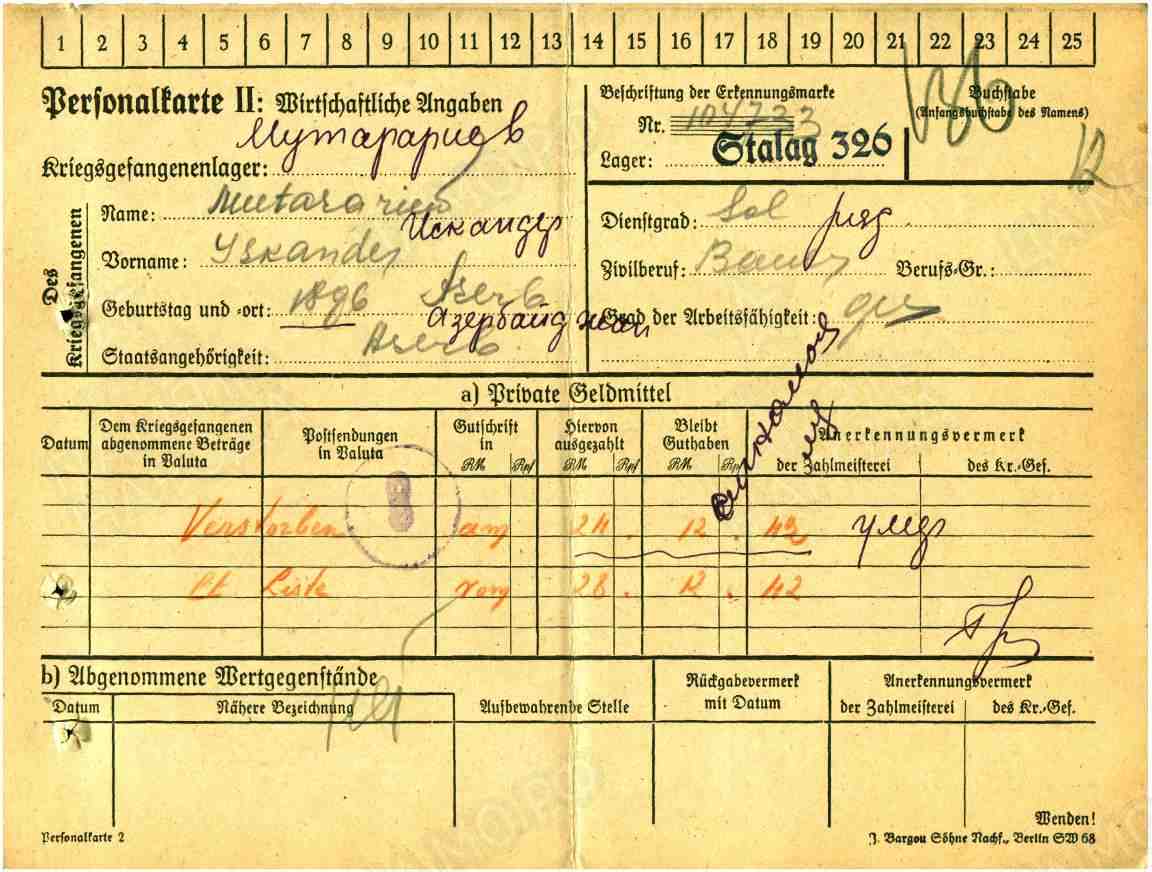 1 2 3 4 5 6 7 8 9 10 11 12 13 14 15 16 17 18 19 20 21 22 23 24 25
Personalkarte II: Wirtschaftliche Angaben
Мутарариев
Kriegsgefangenenlager:
Beschriftung der Erkennungsmarke
Nr. 104733
Lager: Stalag 326
Buchstabe
(Anfangsbuchstabe des Namens)
Des Kriegsgefangenen
Name: Mutarariew
Искандер
Vorname: Iskander
Geburtstag und -ort: 1896 Aserb
Азербайджан
Staatsangehörigkeit: Aserb.
Dienstgrad: Sol
Zivilberuf: Bauer Berufs-Gr.:
Grad der Arbeitsfähigkeit:
a) Private Geldmittel
Datum
Dem Kriegsgefangenen abgenommene Beträge in Valuta
Postsendungen in Valuta
Gutschrift in RM Rpf
Hiervon ausgezahlt RM Rpf
Bleibt Guthaben RM Rpf
Anerkennungsvermerk
der Zahlmeisterei des Kr.-Gef.
8
Verstorben am 24. 12. 42 умер
lt Liste vom 28. 12. 42
b) Abgenommene Wertgegenstände
Datum
Nähere Bezeichnung
Aufbewahrende Stelle
Rückgabevermerk mit Datum
Anerkennungsvermerk
der Zahlmeisterei des Kr.-Gef.
Wenden!
Personalkarte 2
J. Bargou Söhne Nachf., Berlin SW 68